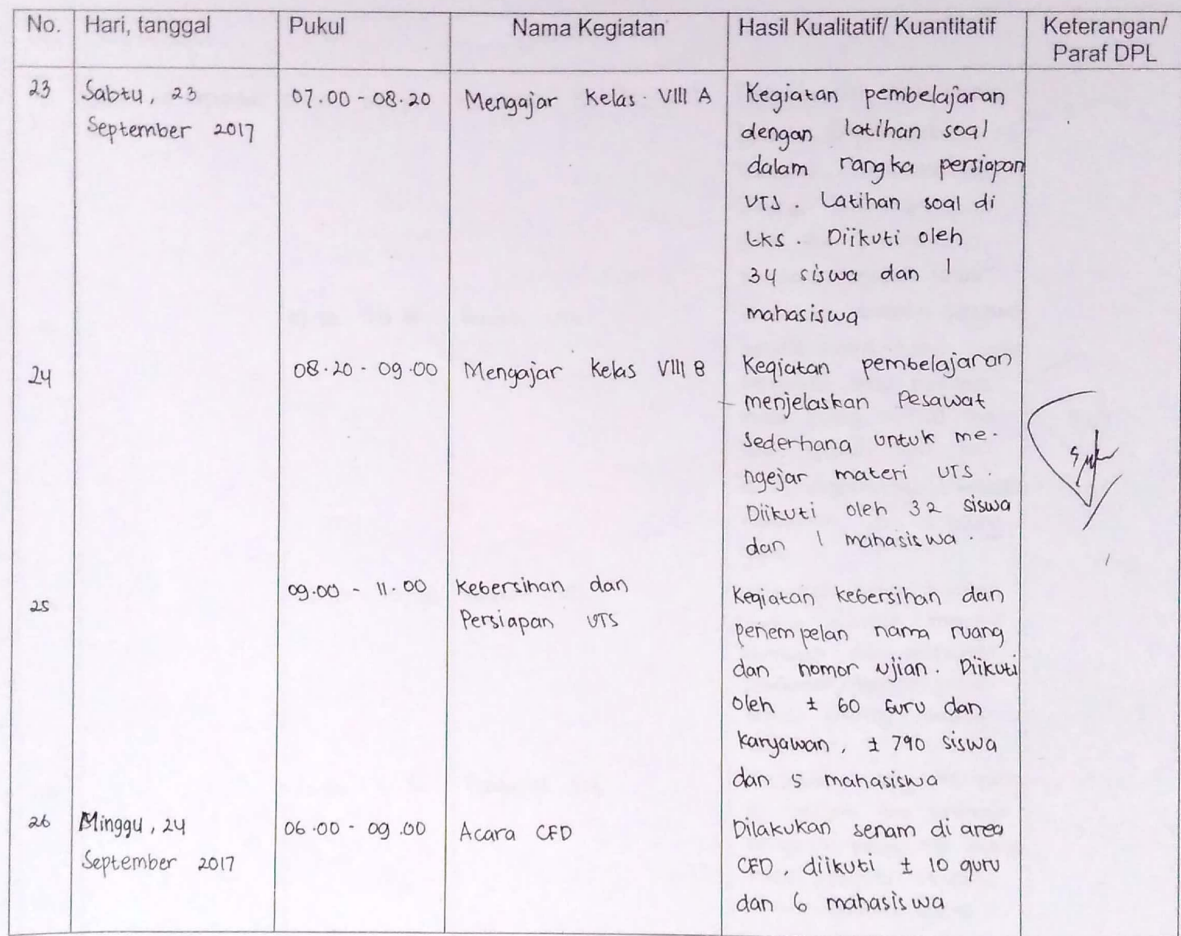 No. Hari, tanggal Pukul Nama Kegiatan Hasil Kualitatif/ Kuantitatif Keterangan/
Paraf DPL
23 Sabtu, 23 07.00 - 08.20 Mengajar Kelas VIII A Kegiatan pembelajaran
September 2017 dengan latihan soal
dalam rangka persiapan
UTS. Latihan soal di
LKS. Diikuti oleh
34 siswa dan 1
mahasiswa
24 08.20 - 09.00 Mengajar Kelas VIII B Kegiatan pembelajaran
menjelaskan Pesawat
Sederhana untuk me-
ngejar materi UTS.
Diikuti oleh 32 siswa
dan 1 mahasiswa.
25 09.00 - 11.00 Kebersihan dan Kegiatan kebersihan dan
Persiapan UTS penempelan nama ruang
dan nomor ujian. Diikuti
oleh ± 60 Guru dan
karyawan, ± 790 siswa
dan 5 mahasiswa
26 Minggu, 24 06.00 - 09.00 Acara CFD Dilakukan senam di area
September 2017 CFD, diikuti ± 10 guru
dan 6 mahasiswa